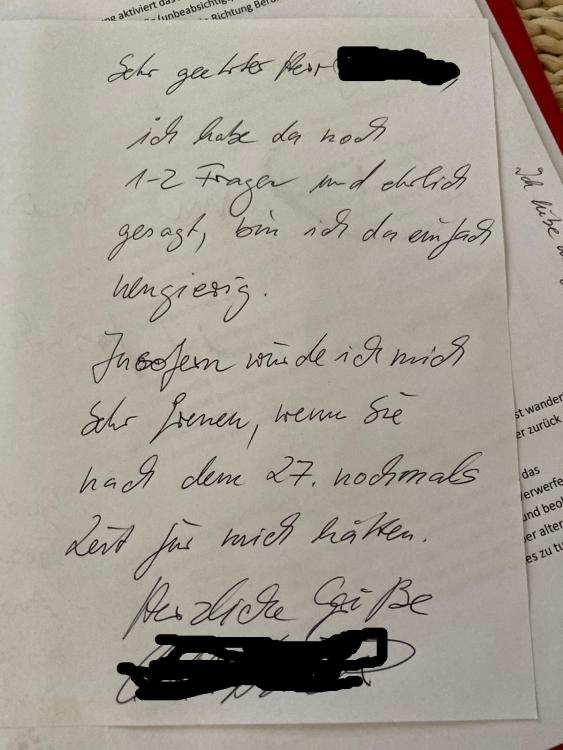 ng aktiviert das
(unbeabsichtig
Richtung Beru
Sehr geehrter Herr
ich habe da noch
1-2 Fragen und ehrlich
gesagt, bin ich da einfach
neugierig.
Insofern würde ich mich
sehr freuen, wenn Sie
nach dem 27. nochmals
Zeit für mich hätten.
Herzliche Grüße
Ich habe
st wander
er zurück
das
verwerfe
und beob
er alter
es zu tu